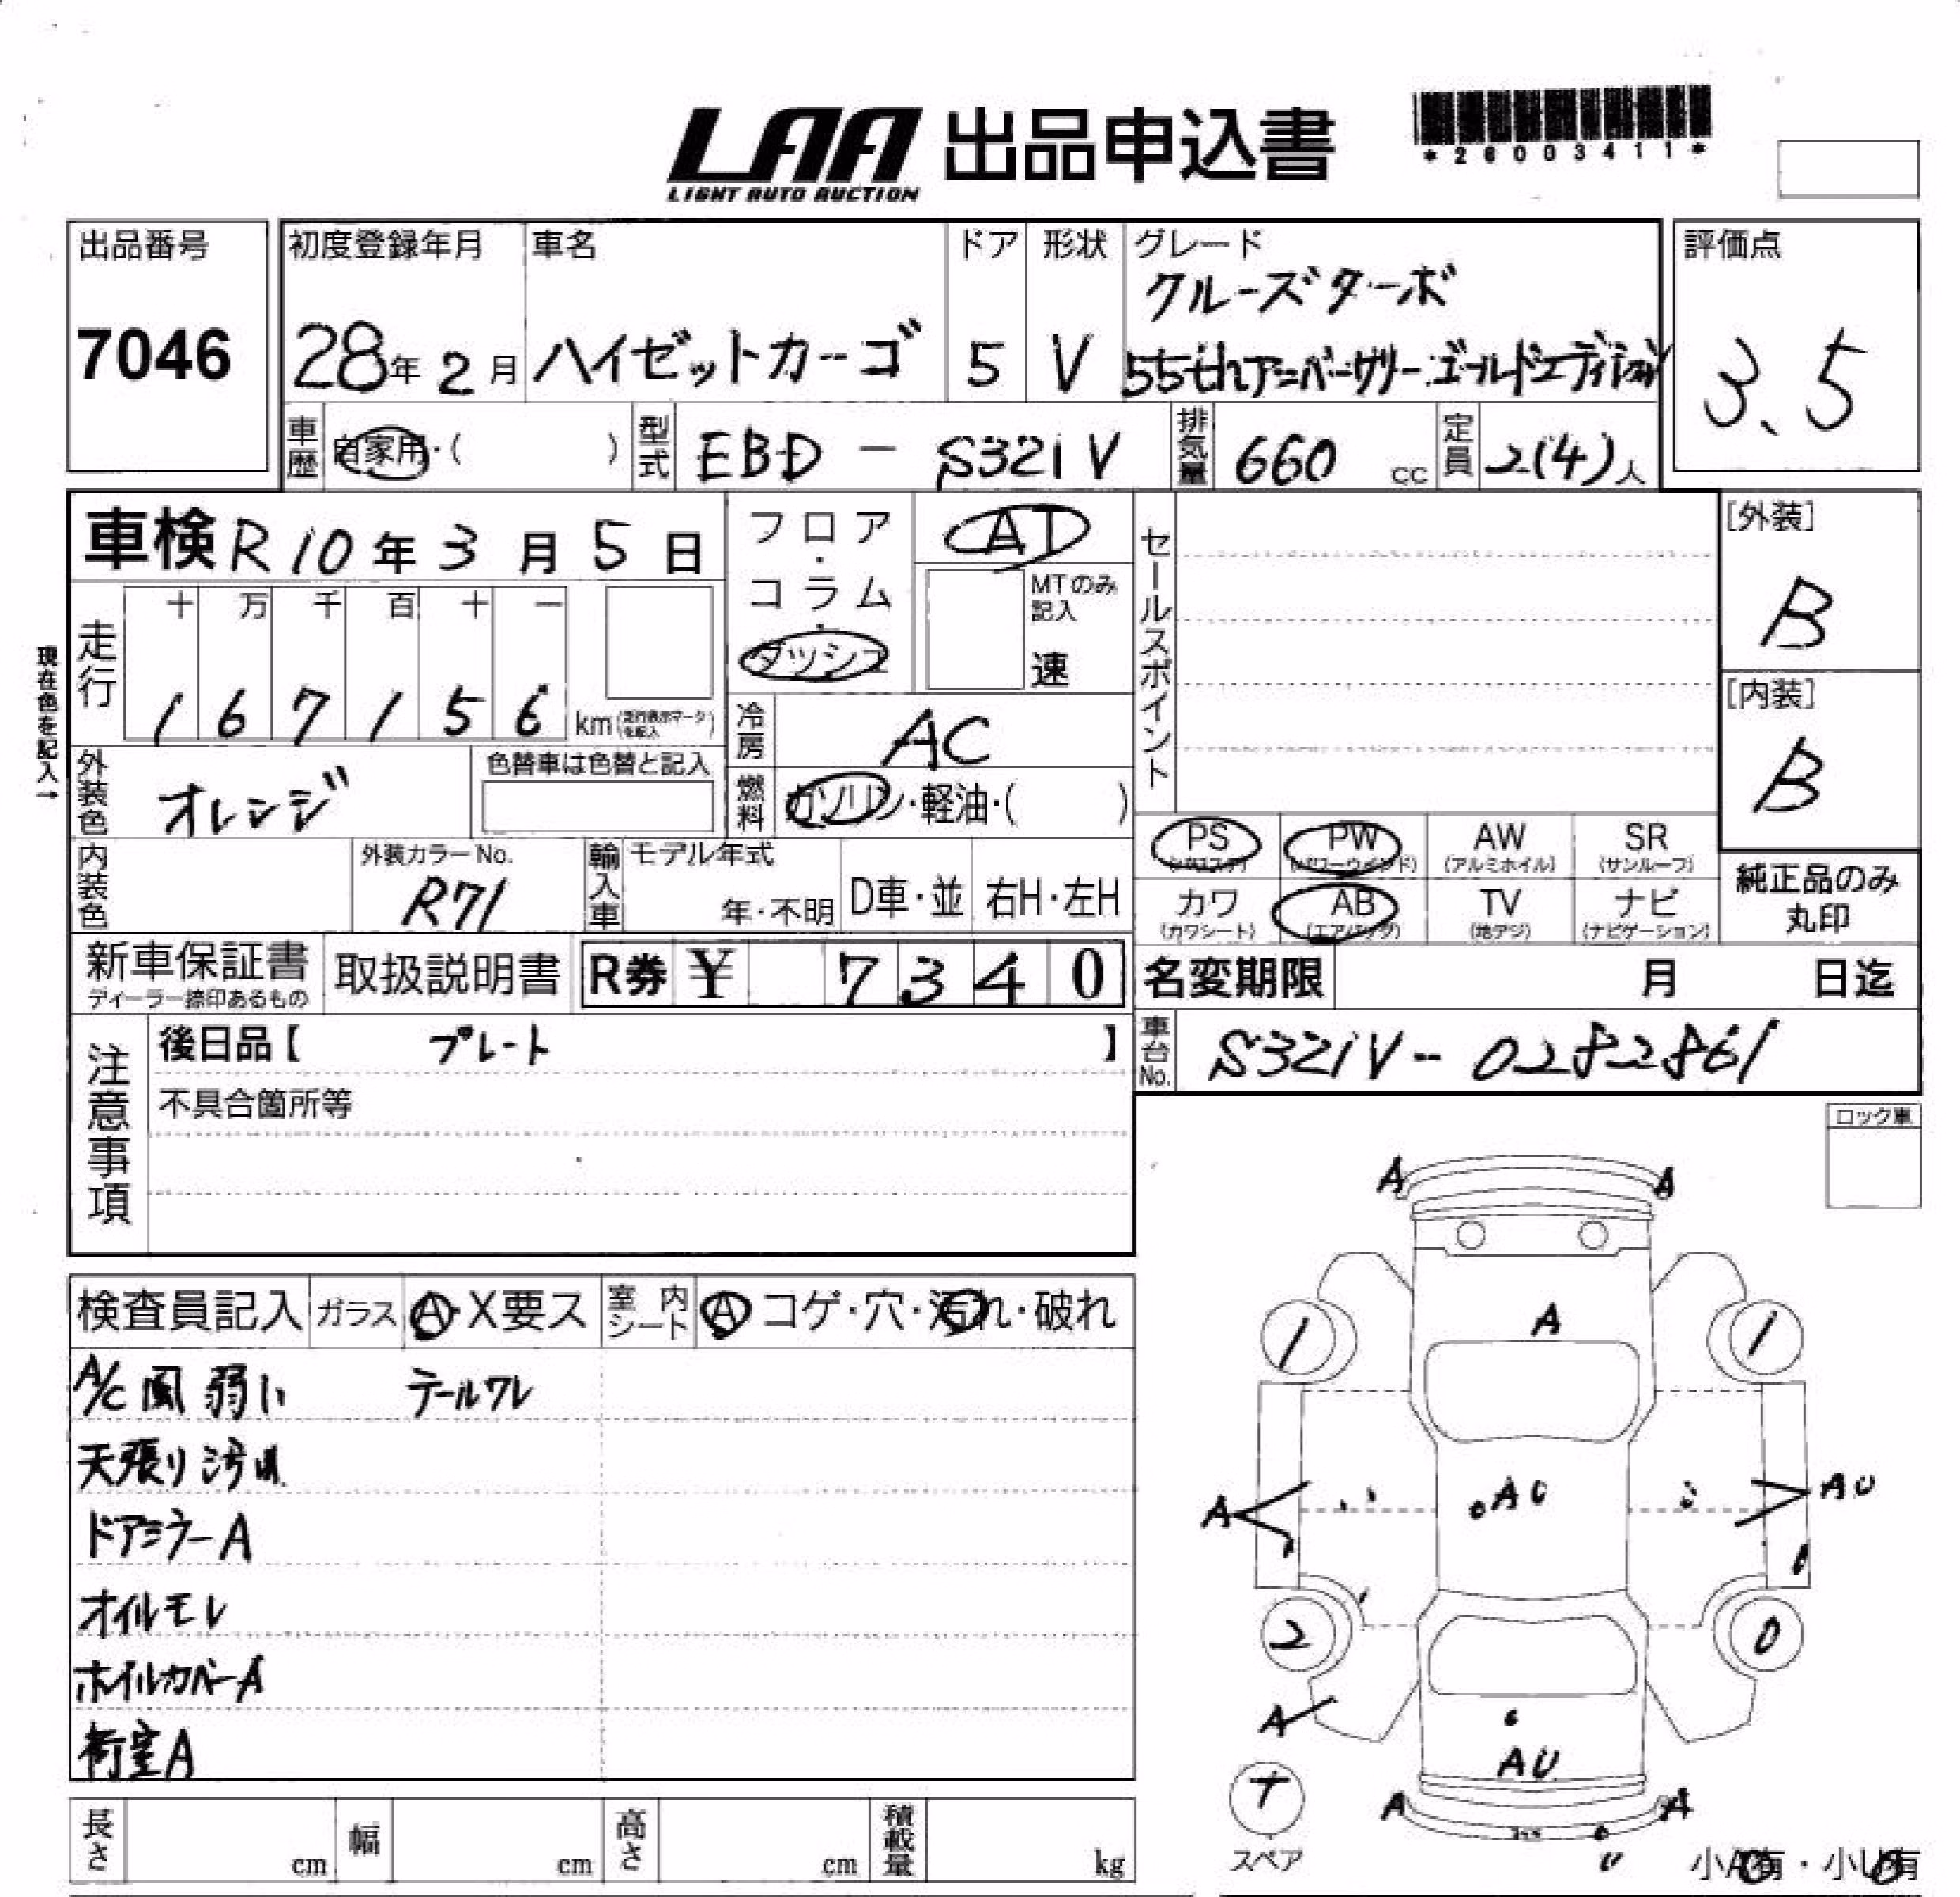 LAA 出品申込書
LIGHT AUTO AUCTION
*26003411*
出品番号
7046
初度登録年月
28年 2月
車名
ハイゼットカーゴ
ドア
5
形状
V
グレード
クルーズターボ
55thアニバーサリーゴールドエディション
評価点
3.5
車歴 自家用・( )
型式 EBD - S321V
排気量 660 cc
定員 2(4)人
車検 R10年 3月 5日
フロア・コラム・ダッシュ
AT
MTのみ記入
速
現在色を記入→
走行
十 万 千 百 十 一
1 6 7 1 5 6 km (走行表示マークを記入)
冷房 AC
外装色 オレンジ
色替車は色替と記入
燃料 ガソリン・軽油・( )
内装色
外装カラーNo.
R71
輸入車
モデル年式
年・不明
D車・並
右H・左H
セールスポイント
[外装]
B
[内装]
B
PS PW AW SR
(パワステ) (パワーウインド) (アルミホイル) (サンルーフ)
カワ AB TV ナビ
(カワシート) (エアバッグ) (地デジ) (ナビゲーション)
純正品のみ
丸印
新車保証書
ディーラー捺印あるもの
取扱説明書
R券 ¥ 7 3 4 0
名変期限 月 日迄
車台No. S321V-0282861
注意事項
後日品【 プレート 】
不具合箇所等
ロック車
検査員記入 ガラス A・X要ス 室内シート A コゲ・穴・汚れ・破れ
A/C 風 弱い テールワレ
天張り汚れ
ドアミラーA
オイルモレ
ホイルカバーA
荷室A
A A
A
1 1
A AU AU
2 0
A
AU
T
スペア
A A
U
小A有・小U有
長さ cm 幅 cm 高さ cm 積載量 kg